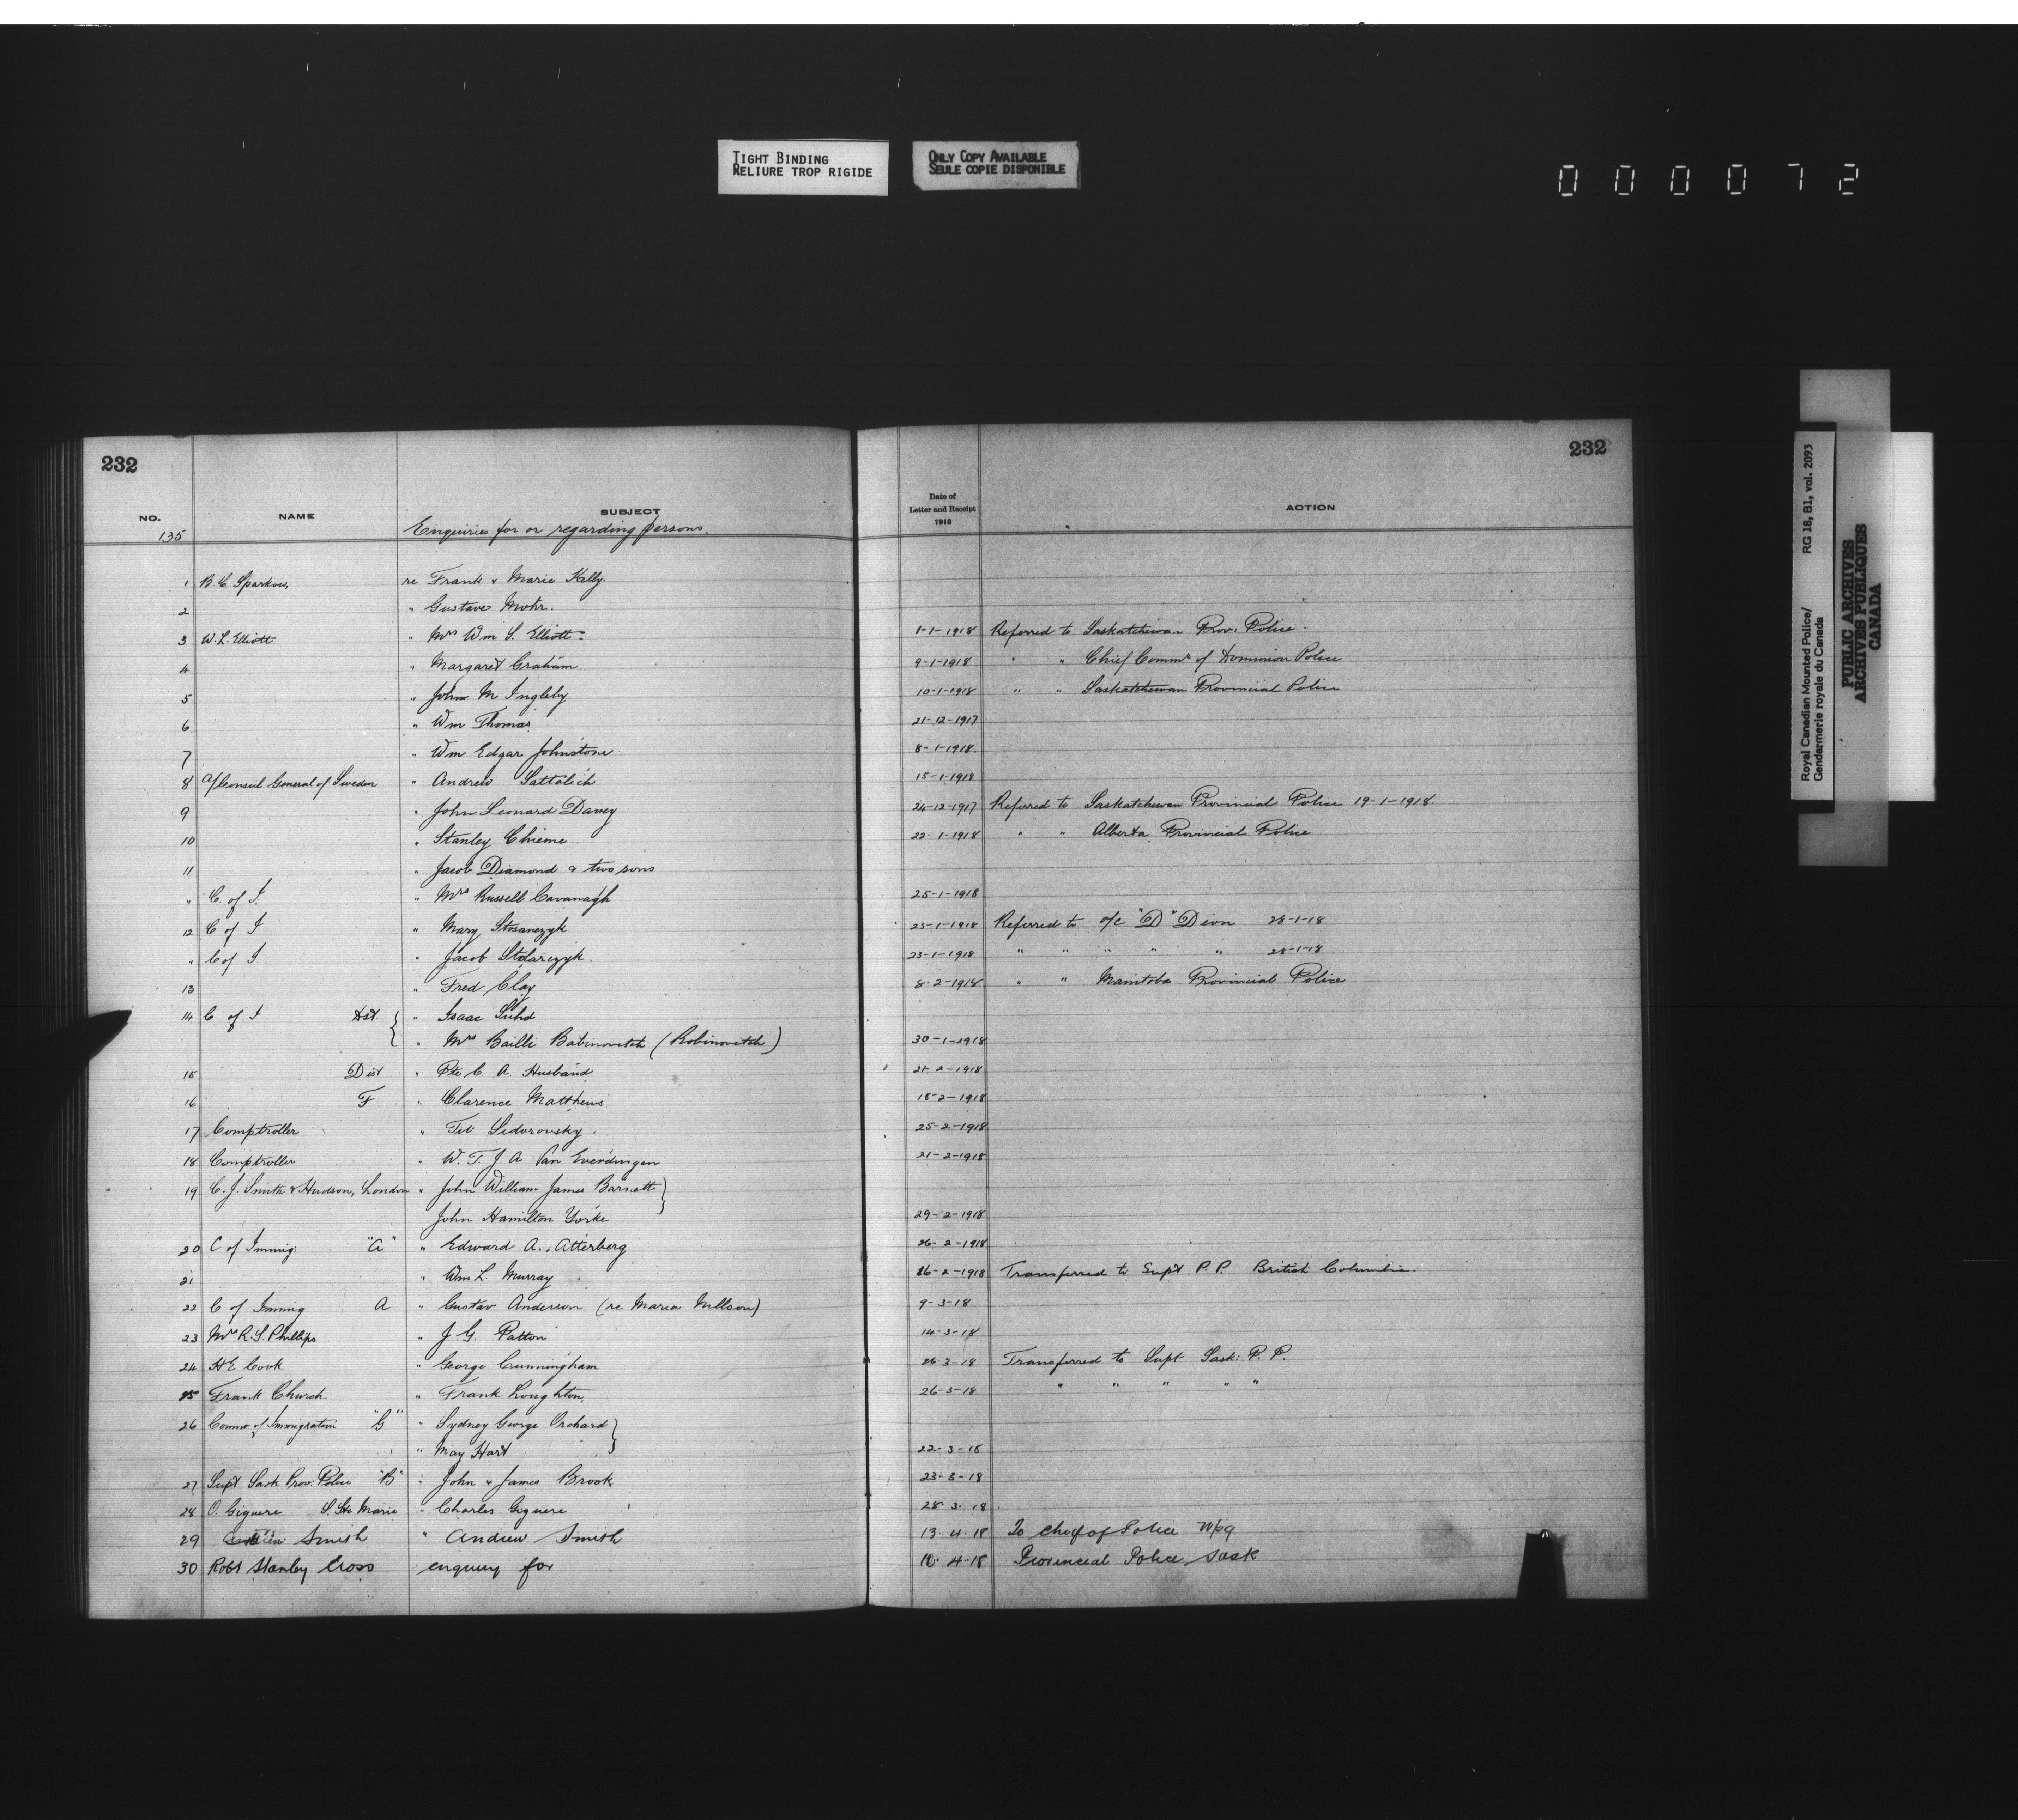 TIGHT BINDING
RELIURE TROP RIGIDE
ONLY COPY AVAILABLE
SEULE COPIE DISPONIBLE
000072
232
232
NO. NAME SUBJECT Date of Letter and Receipt 1918 ACTION
135 Enquiries for or regarding persons.
1 B.C. Sparkow, re Frank & Marie Kelly.
2 " Gustave Mohr.
3 W. L. Elliott " Mrs Wm S. Elliott. 1-1-1918 Referred to Saskatchewan Prov. Police.
4 " Margaret Graham 9-1-1918 " " Chief Commr of Dominion Police
5 " John M Ingleby 10-1-1918 " " Saskatchewan Provincial Police
6 " Wm Thomas 21-12-1917
7 " Wm Edgar Johnstone 8-1-1918.
8 A/Consul General of Sweden " Andrew Sattalich 15-1-1918
9 " John Leonard Davey 24-12-1917 Referred to Saskatchewan Provincial Police 19-1-1918.
10 " Stanley Chieme 22-1-1918 " " Alberta Provincial Police
11 " Jacob Diamond & two sons
" C. of I. " Mrs Russell Cavanagh 25-1-1918
12 C of I " Mary 23-1-1918 Referred to o/c "D" Divn 28-1-18
" C of I " Jacob Stolarczyk 23-1-1918 " " " " " 28-1-18
13 " Fred Clay 8-2-1918 " " Manitoba Provincial Police
14 C of I " Isaac
" Mrs Bailli Babinovitch (Robinovitch) 30-1-1918
15 Dist " Pte C. A. Husband 21-2-1918
16 F " Clarence Matthews 18-2-1918
17 Comptroller " Tit Sidorovsky. 25-2-1918
18 Comptroller " W. T. J. A Van Everdingen 21-2-1918
19 C. J. Smith & Hudson, London " John William James Barnett
John Hamilton Yorke 29-2-1918
20 C of Immig: "A" " Edward A. Atterberg 26-2-1918
21 " Wm L. Murray 26-2-1918 Transferred to Supt P.P. British Columbia.
22 C of Immig A " Gustav Anderson (re Maria Nillson) 9-3-18
23 Mrs R. S. Phillips " J. G. Patton 14-3-18
24 H E Cook " George Cunningham 26-3-18 Transferred to Supt Sask: P. P.
25 Frank Church " Frank Loughton 26-3-18 " " " " "
26 Commr of Immigration "G" " Sydney George Orchard
" May Hart 22-3-18
27 Supt Sask Prov. Police "B" " John & James Brook 23-3-18
28 O. Giguere S. Ste Marie " Charles Giguere 28.3.18
29 Smith " Andrew Smith 13.4.18 To Chief of Police Wpg
30 Robt Stanley Cross enquiry for 10.4.18 Provincial Police Sask
Royal Canadian Mounted Police/ RG 18, B1, vol. 2093
Gendarmerie royale du Canada
PUBLIC ARCHIVES
ARCHIVES PUBLIQUES
CANADA